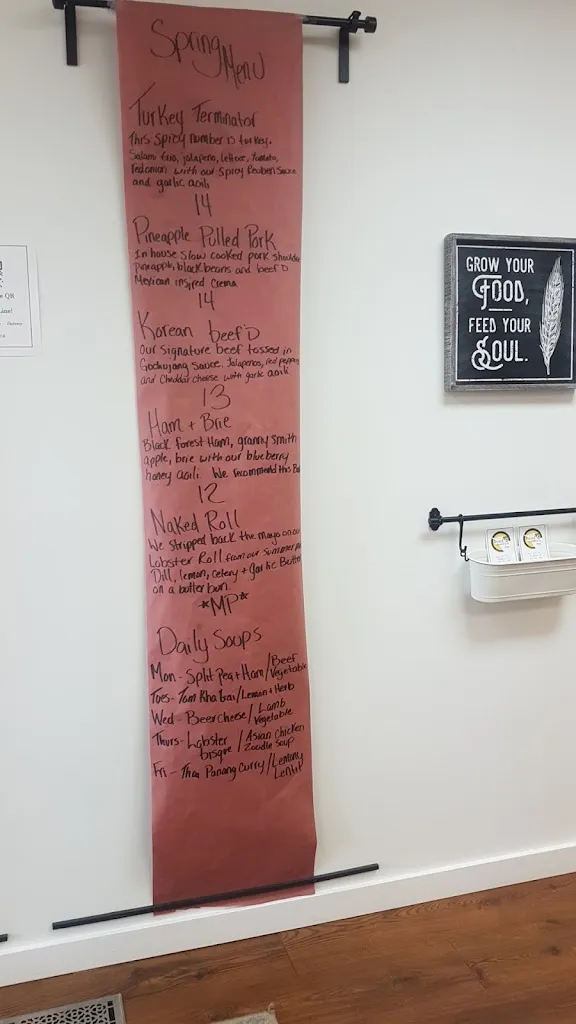 Spring Menu
Turkey Terminator
This spicy number is turkey,
Salami trio, jalapeno, lettuce, tomato,
red onion with our spicy Reuben Sauce
and garlic aoili
14
Pineapple Pulled Pork
In house slow cooked pork shoulder
pineapple, black beans and beef'D
Mexican inspired Crema
14
Korean beef'D
Our signature beef tossed in
Gochujang Sauce, Jalapenos, red peppers
and Cheddar cheese with garlic aoili
13
Ham + Brie
Black forest Ham, granny smith
apple, brie with our blueberry
honey aoili. We recommend this
12
Naked Roll
We stripped back the mayo on our
Lobster Roll from our summer
Dill, lemon, celery + garlic Butter
on a butter bun.
*MP*
Daily Soups
Mon - Split Pea + Ham / Beef Vegetable
Tues - Tom Kha Gai / Lemon + Herb
Wed - Beer cheese / Lamb Vegetable
Thurs - Lobster bisque / Asian Chicken Zoodle Soup
Fri - Thai Panang Curry / Lemony Lentil
GROW YOUR
FOOD,
FEED YOUR
SOUL.
QR